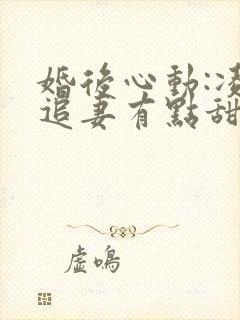 婚後心動:凌
追妻有點甜
虛鳴